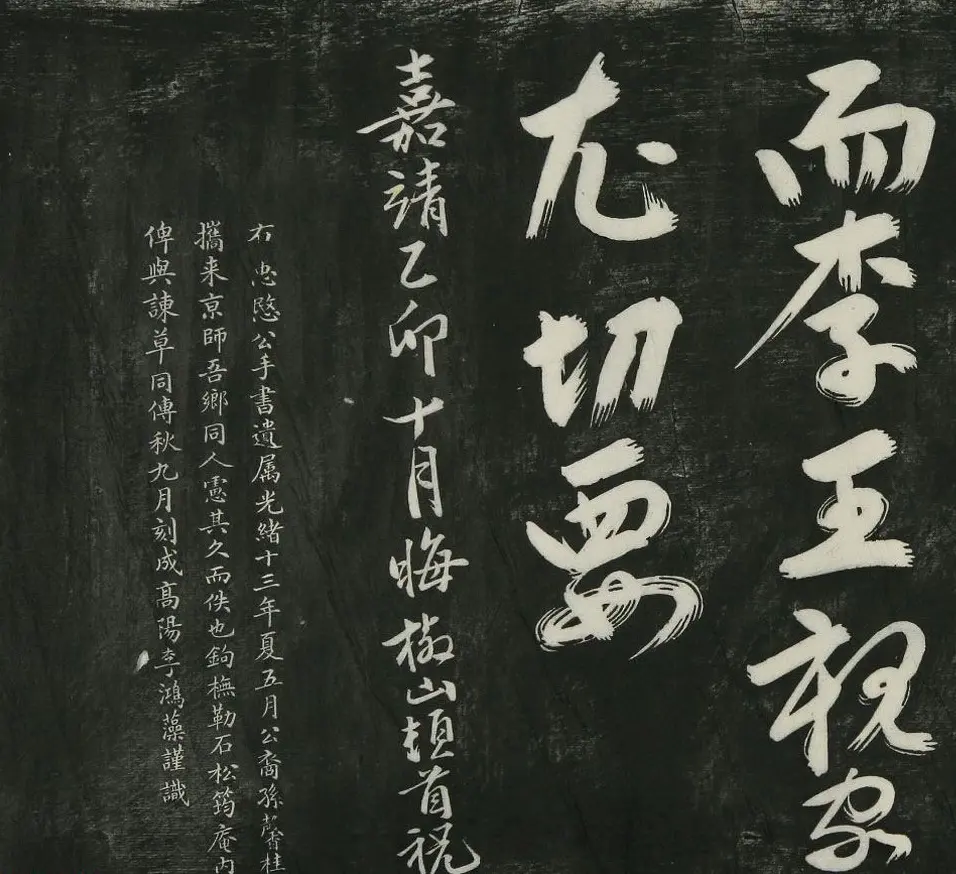 而李王祝家
尤切要
嘉靖乙卯十月晦椒山頓首祝
右忠愍公手書遺属光緒十三年夏五月公裔孫馨桂
攜来京師吾鄉同人慮其久而佚也鉤橅勒石松筠庵内
俾與諫草同傳秋九月刻成髙陽李鴻藻謹識